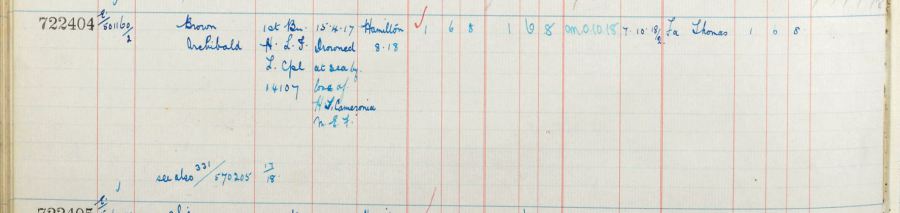 722404 E/501160/2 Brown 1st Bn. 15.4.17 Hamilton 1 6 8 1 6 8 on 10.18 7.10.18 Fa Thomas 1 6 8
Archibald H.L.I. Drowned 8.18
L. Cpl at sea by
14107 loss of
H.T. Cameronia
M.E.F.
see also 331/570205 17/18
722405